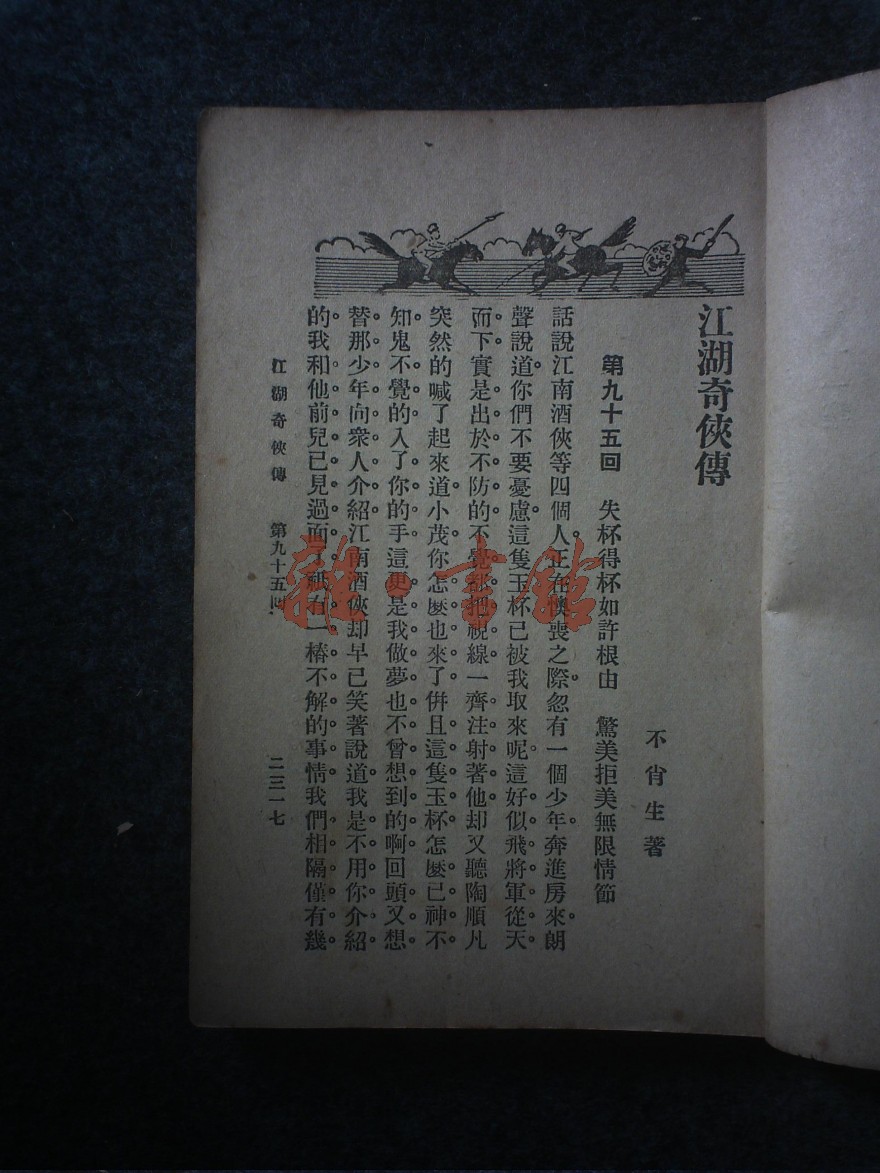 江湖奇俠傳
不肖生著
第九十五回　失杯得杯如許根由　驚美拒美無限情節
話說江南酒俠等四個人正在懊喪之際。忽有一個少年奔進房來。朗
聲說道。你們不要憂慮。這隻玉杯已被我取來呢。這好似飛將軍從天
而下。實是出於不防的。不覺都把視線一齊注射著他。却又聽陶順凡
突然的喊了起來道。小茂。你怎麼也來了。倂且這隻玉杯。怎麼已神不
知鬼不覺的入了你的手。這更是我做夢也不曾想到的啊。回頭又想
替那少年向衆人介紹。江南酒俠却早已笑著說道。我是不用你介紹
的。我和他前兒已見過面了。祇有一樁不解的事情。我們相隔僅有幾
江湖奇俠傳　第九十五回　二三一七
雜·書館